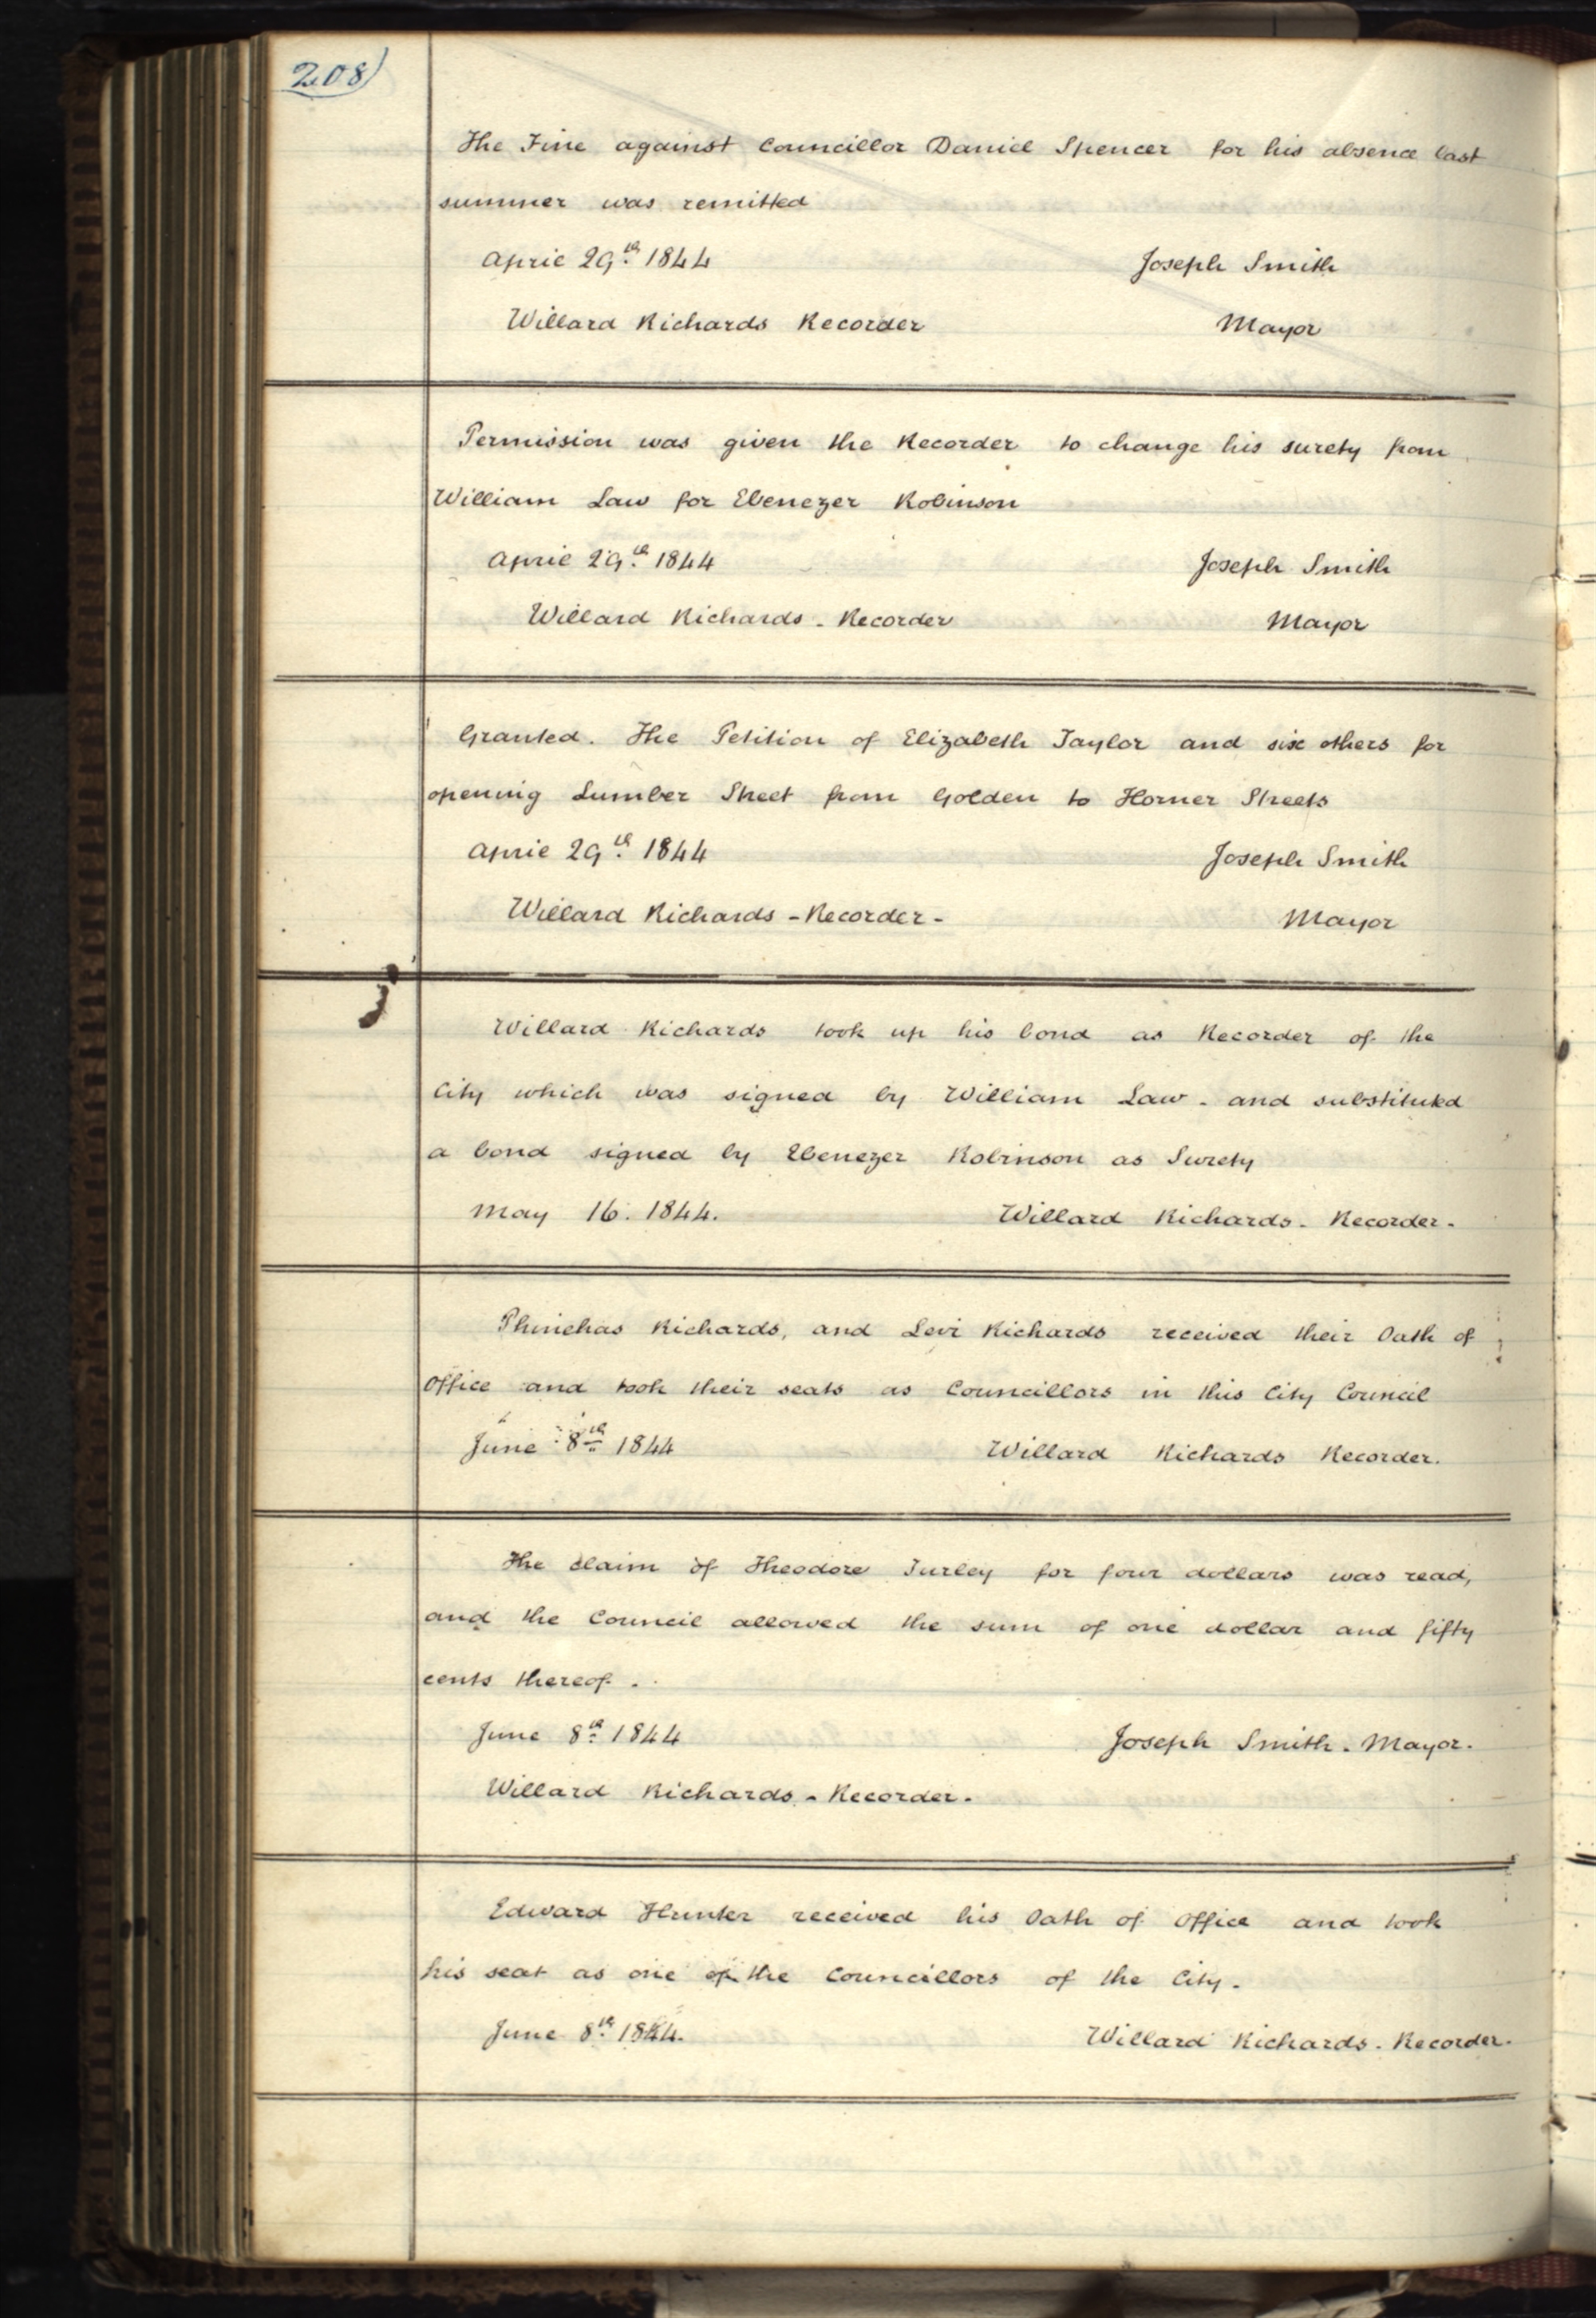 208)
The Fine against Councillor Daniel Spencer for his absence last
summer was remitted
April 29th. 1844 Joseph Smith
Willard Richards Recorder Mayor
Permission was given the Recorder to change his surety from
William Law for Ebenezer Robinson
April 29th. 1844 Joseph Smith
Willard Richards - Recorder Mayor
Granted. The Petition of Elizabeth Taylor and six others for
opening Lumber Street from Golden to Horner Streets
April 29th. 1844 Joseph Smith
Willard Richards - Recorder - Mayor
Willard Richards took up his bond as Recorder of the
City which was signed by William Law - and substituted
a bond signed by Ebenezer Robinson as Surety
May 16. 1844. Willard Richards - Recorder -
Phinehas Richards, and Levi Richards received their Oath of
Office and took their seats as Councillors in this City Council
June 8th 1844 Willard Richards Recorder.
The claim of Theodore Turley for four dollars was read,
and the Council allowed the sum of one dollar and fifty
cents thereof.
June 8th. 1844 Joseph Smith - Mayor.
Willard Richards - Recorder -
Edward Hunter received his Oath of Office and took
his seat as one of the Councillors of the City -
June 8th. 1844. Willard Richards - Recorder.